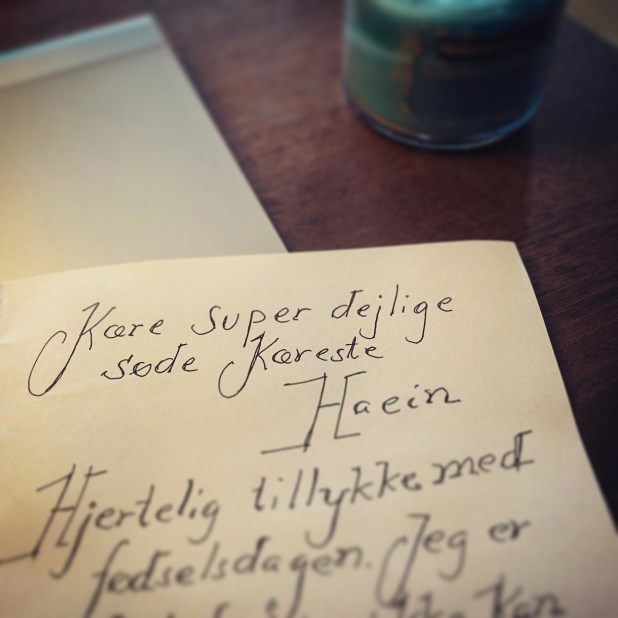 Kære super dejlige
søde Kæreste
Haein
Hjertelig tillykke med
fødselsdagen. Jeg er
ikke kan